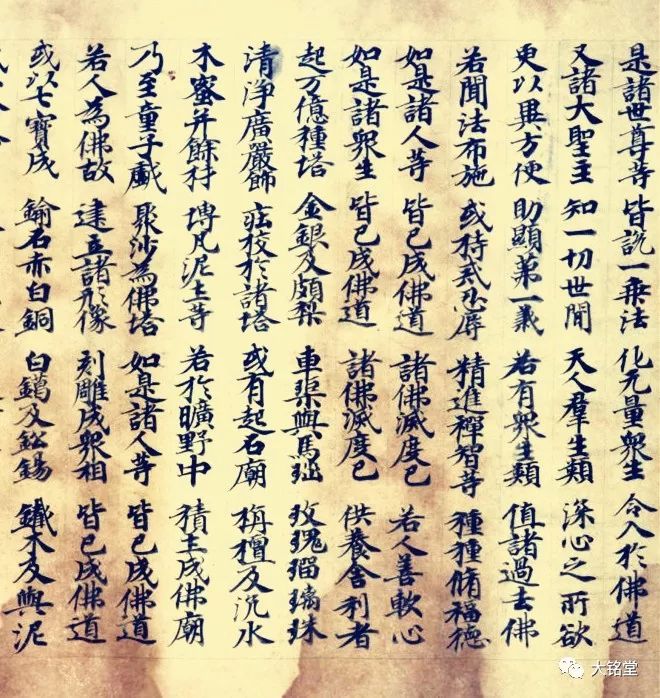 是諸世尊等 皆說一乘法 化无量衆生 令入於佛道
又諸大聖主 知一切世閒 天人羣生類 深心之所欲
更以異方便 助顯第一義 若有衆生類 值諸過去佛
若聞法布施 或持戒忍辱 精進禪智等 種種脩福德
如是諸人等 皆已成佛道 諸佛滅度已 若人善軟心
如是諸衆生 皆已成佛道 諸佛滅度已 供養舍利者
起万億種塔 金銀及頗梨 車渠與馬瑙 玫瑰瑠璃珠
清淨廣嚴飾 莊校於諸塔 或有起石廟 栴檀及沉水
木蜜并餘材 塼瓦泥土等 若於曠野中 積土成佛廟
乃至童子戲 聚沙為佛塔 如是諸人等 皆已成佛道
若人為佛故 建立諸形像 刻雕成衆相 皆已成佛道
或以七寶成 鍮石赤白銅 白鑞及鉛錫 鐵木及與泥
大铭堂